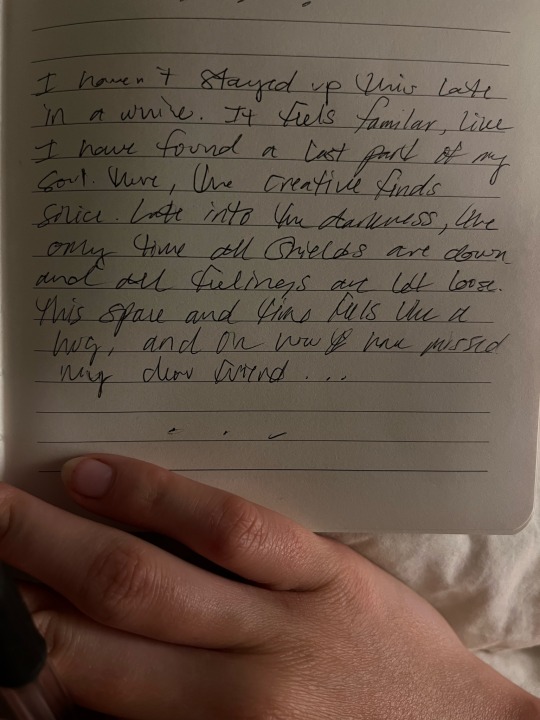 I haven't stayed up this late
in a while. It feels familar, like
I have found a lost part of my
soul. Here, the creative finds
solice. Late into the darkness, the
only time all shields are down
and all feelings are let loose.
This space and time feels like a
hug, and oh how I have missed
my dear friend ...